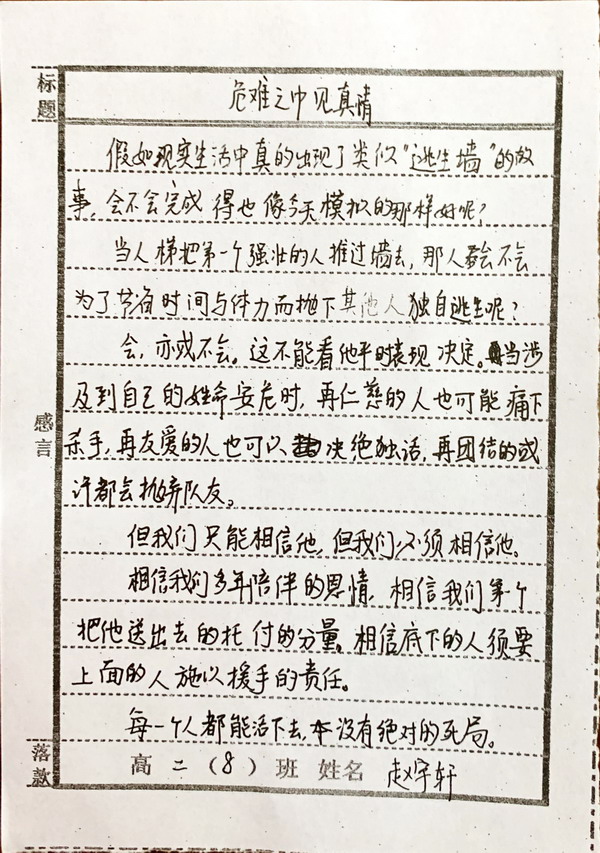 标题
危难之中见真情
假如现实生活中真的出现了类似“逃生墙”的故
事,会不会完成得也像今天模拟的那样好呢?
当人梯把第一个强壮的人推过墙去,那人会不会
为了节省时间与体力而抛下其他人独自逃生呢?
会,亦或不会。这不能看他平时表现决定。当涉
及到自己的姓命安危时,再仁慈的人也可能痛下
杀手,再友爱的人也可以决绝独活,再团结的或
许都会抛弃队友。
感言
但我们只能相信他,但我们必须相信他。
相信我们多年陪伴的恩情,相信我们第一个
把他送出去的托付的分量。相信底下的人须要
上面的人施以援手的责任。
每一个人都能活下去,本没有绝对的死局。
落款
高二(8)班 姓名 赵宇轩